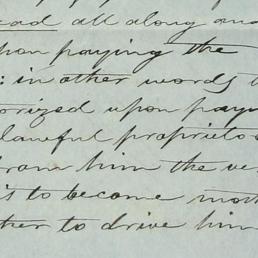 read all along and
upon paying the
: in other words t
orized upon payin
lawful proprieto
from him the ve
is to become mot
ther to drive him